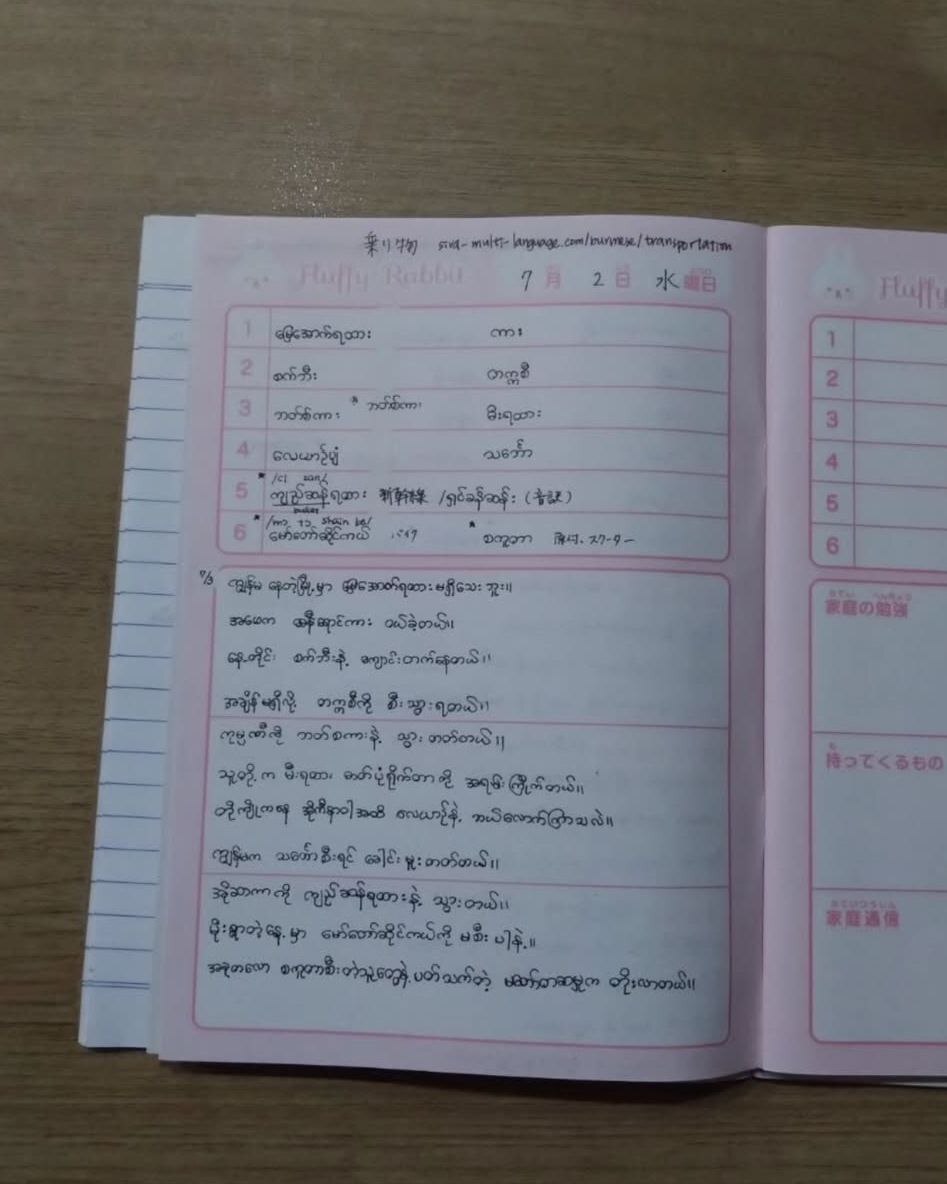 乗り物 sira-multi-language.com/burmese/transportation
Fluffy Rabbit 7月 2日 水曜日
1 မြေအောက်ရထား ကား
2 စက်ဘီး တက္ကစီ
3 ဘတ်စ်ကား * ဘတ်စ်ကား မီးရထား
4 လေယာဉ်ပျံ သင်္ဘော
5 * ကျည်ဆန်ရထား 新幹線 /ရှင်ခန်ဆန်း (音訳)
bullet
6 * /mɔ tɔ shain ke/ မော်တော်ဆိုင်ကယ် バイク * စကူတာ スクーター
7/3 ကျွန်မ နေတဲ့မြို့မှာ မြေအောက်ရထား မရှိသေးဘူး။
အမေက အနီရောင်ကား ဝယ်ခဲ့တယ်။
နေ့တိုင်း စက်ဘီးနဲ့ ကျောင်းတက်နေတယ်။
အချိန်မရှိလို့ တက္ကစီကို စီးသွားရတယ်။
ကုမ္ပဏီကို ဘတ်စကားနဲ့ သွားတတ်တယ်။
သူတို့က မီးရထား ဓာတ်ပုံရိုက်တာကို အရမ်းကြိုက်တယ်။
တိုကျိုကနေ အိုကီနာဝါအထိ လေယာဉ်နဲ့ ဘယ်လောက်ကြာသလဲ။
ကျွန်မက သင်္ဘောစီးရင် ခေါင်းမူးတတ်တယ်။
အိုဆာကာကို ကျည်ဆန်ရထားနဲ့ သွားတယ်။
မိုးရွာတဲ့နေ့မှာ မော်တော်ဆိုင်ကယ်ကို မစီးပါနဲ့။
အခုတလော စကူတာစီးတဲ့သူတွေနဲ့ ပတ်သက်တဲ့ မတော်တဆမှုက တိုးလာတယ်။
Fluffy
1
2
3
4
5
6
家庭の勉強
持ってくるもの
家庭通信